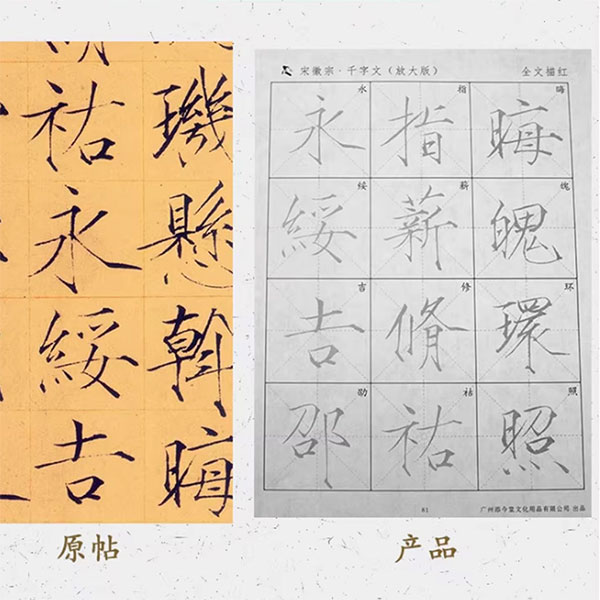 璣懸斡晦
祐永綏吉
原帖
宋徽宗·千字文（放大版）
全文描红
晦 魄 环 照
晦魄環照
指 薪 修 祜
指薪脩祐
永 绥 吉 劭
永綏吉邵
81
广州 今堂文化用品有限公司 出品
产品